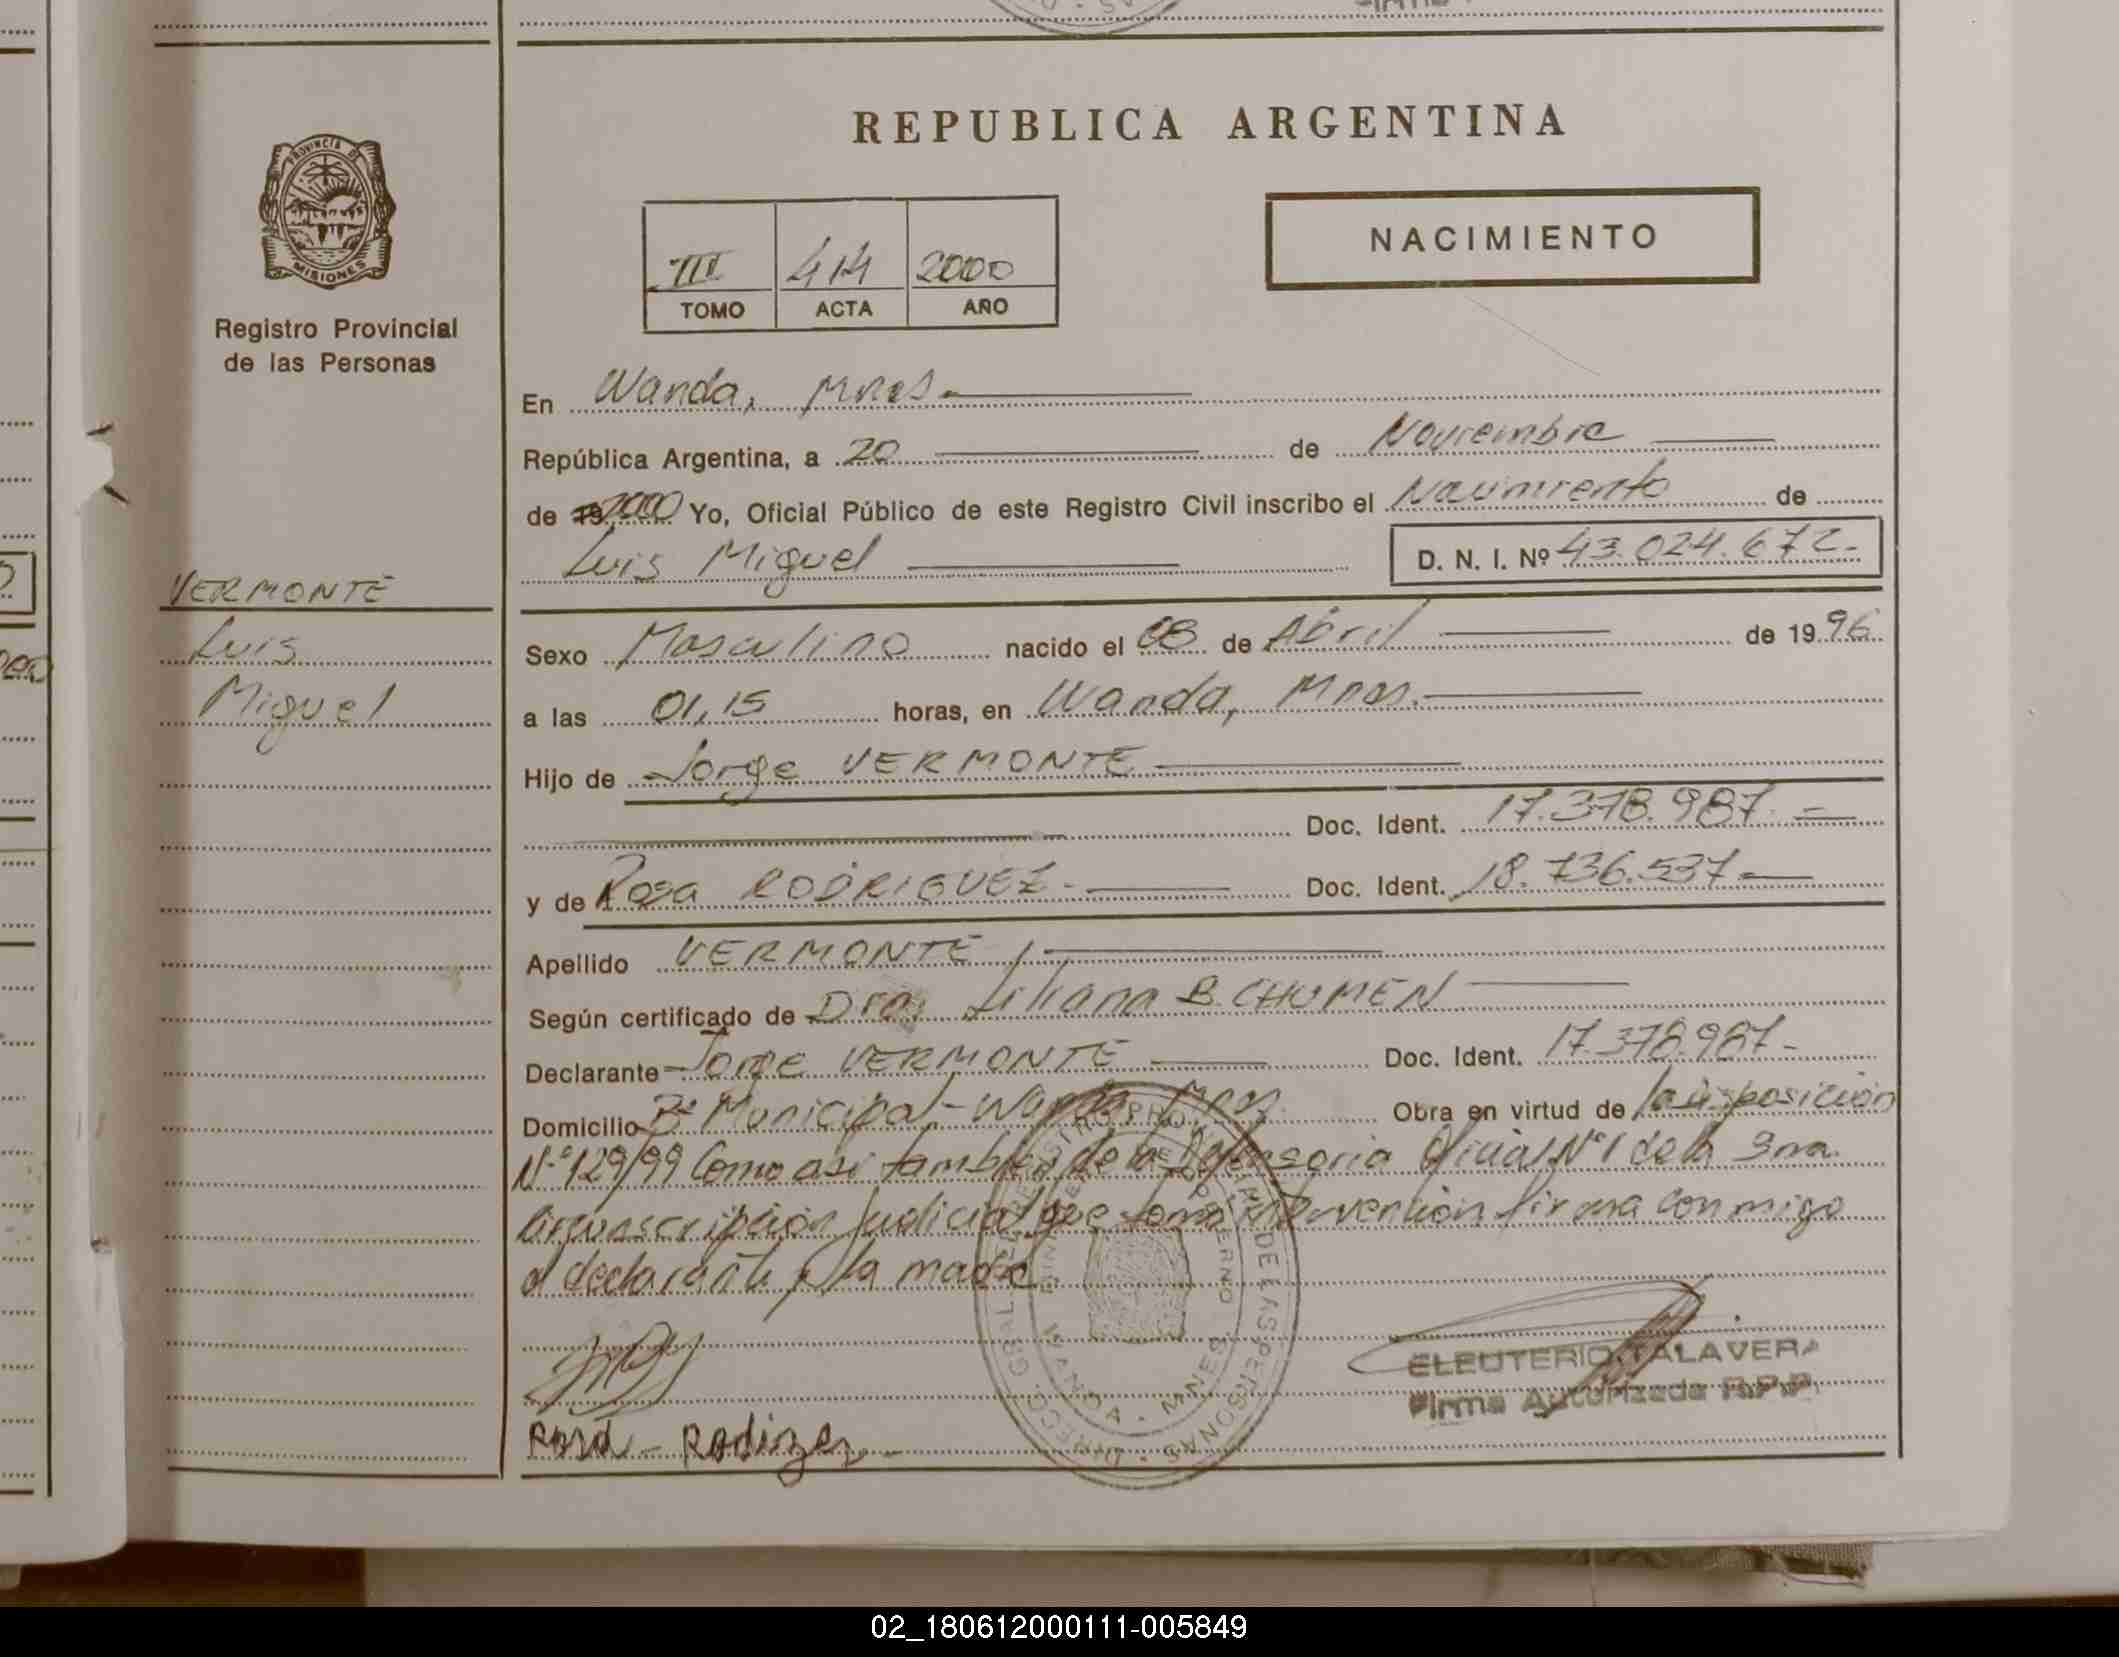 REPUBLICA ARGENTINA
PROVINCIA DE
MISIONES
Registro Provincial
de las Personas
III 414 2000
TOMO ACTA AÑO
NACIMIENTO
En Wanda, Mnes.
República Argentina, a 20 de Noviembre
de 19 2000 Yo, Oficial Público de este Registro Civil inscribo el Nacimiento de
Luis Miguel D. N. I. Nº 43.024.672.-
VERMONTE
Luis
Miguel
Sexo Masculino nacido el 08 de Abril de 19 96
a las 01,15 horas, en Wanda, Mnes.
Hijo de Jorge VERMONTE
Doc. Ident. 17.378.987.-
y de Rosa RODRIGUEZ.- Doc. Ident. 18.736.537.-
Apellido VERMONTE
Según certificado de Dra. Liliana B. CHUMEN
Declarante Jorge VERMONTE Doc. Ident. 17.378.987-
Domicilio Bº Municipal - Wanda, Mnes. Obra en virtud de la disposición
Nº 129/99 Como asi tambien de la Defensoria Oficial Nº 1 de la 3ra.
Circunscripción Judicial que toma intervención firma conmigo
el declarante y la madre
ELEUTERIO TALAVERA
Firma Autorizada R.P.P.
Rosa - Rodizez -
WANDA - MNES.
02_180612000111-005849